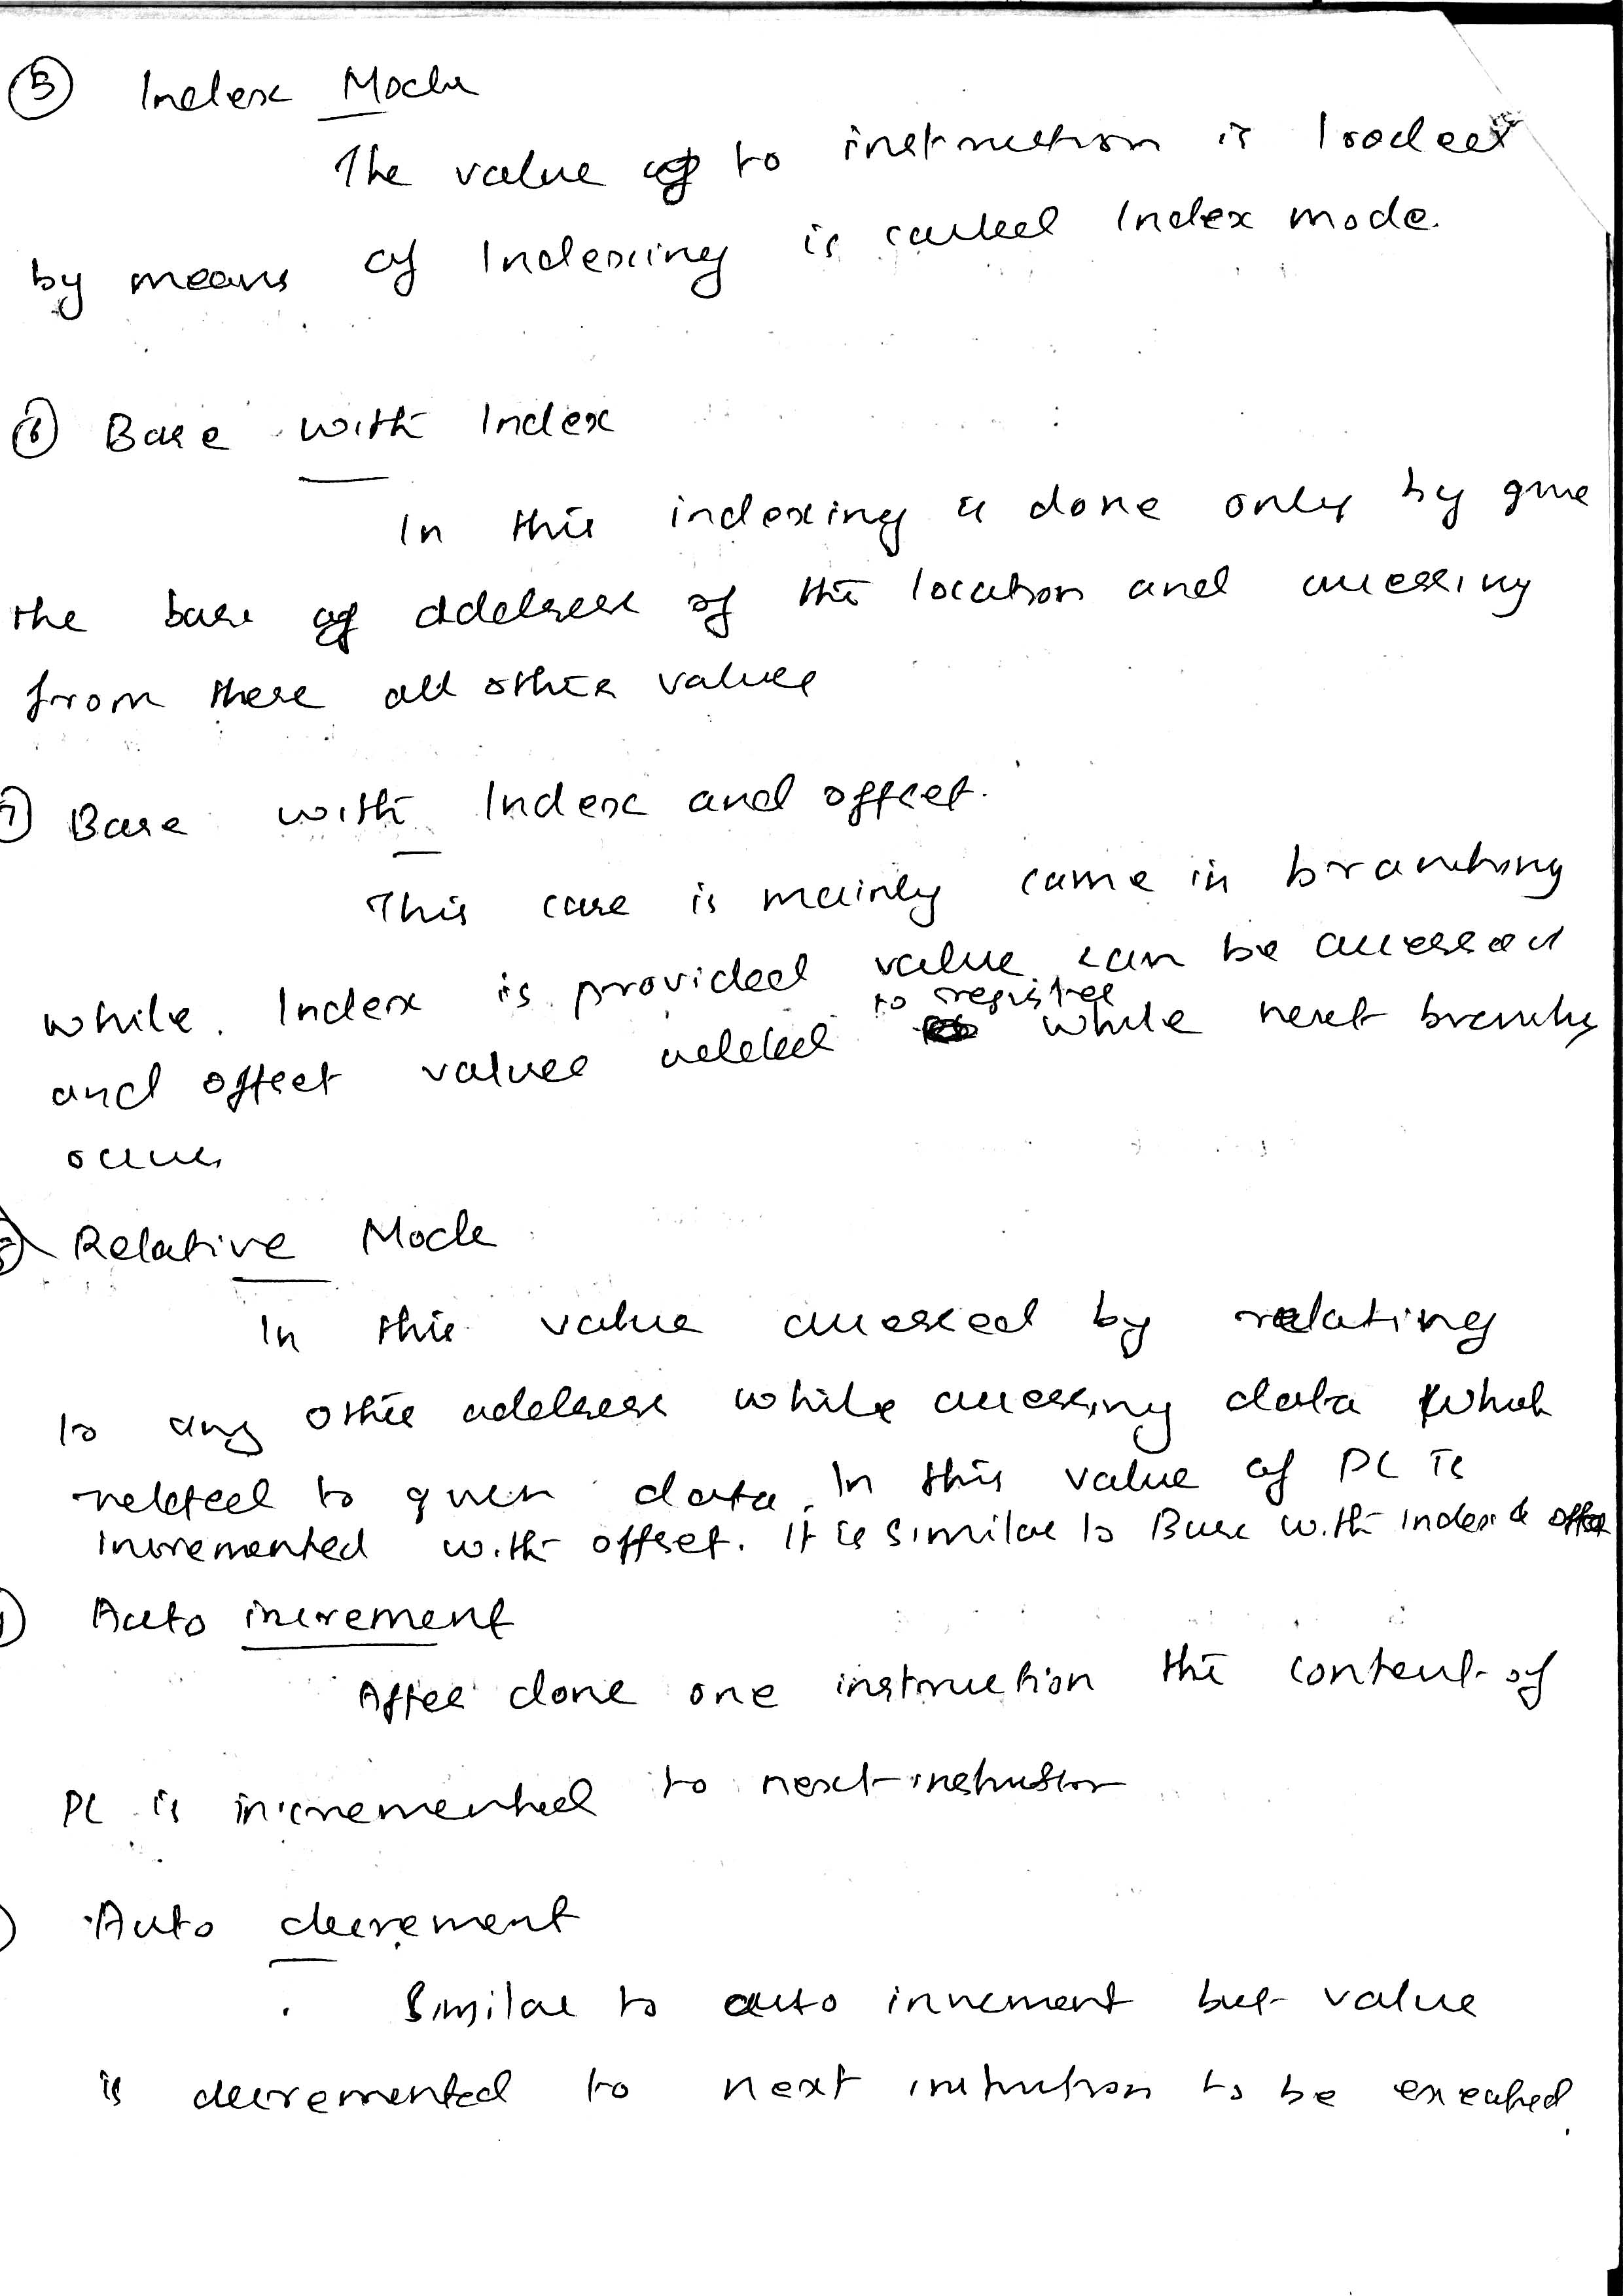 5 Index Mode
The value of to instruction is loaded
by means of Indexing is called Index mode.
6 Base with Index
In this indexing is done only by give
the base of address of the location and accessing
from there all other values
7 Base with Index and offset.
This case is mainly came in branching
while Index is provided value can be accessed
to register
and offset values added while next branching
occurs
Relative Mode
In this value accessed by relating
to any other address while accessing data which
related to given data. In this value of PC is
Incremented with offset. It is similar to Base with index &
Auto increment
After done one instruction the content of
PC is incremented to next instruction
Auto decrement
Similar to auto increment but value
is decremented to next instruction to be executed.